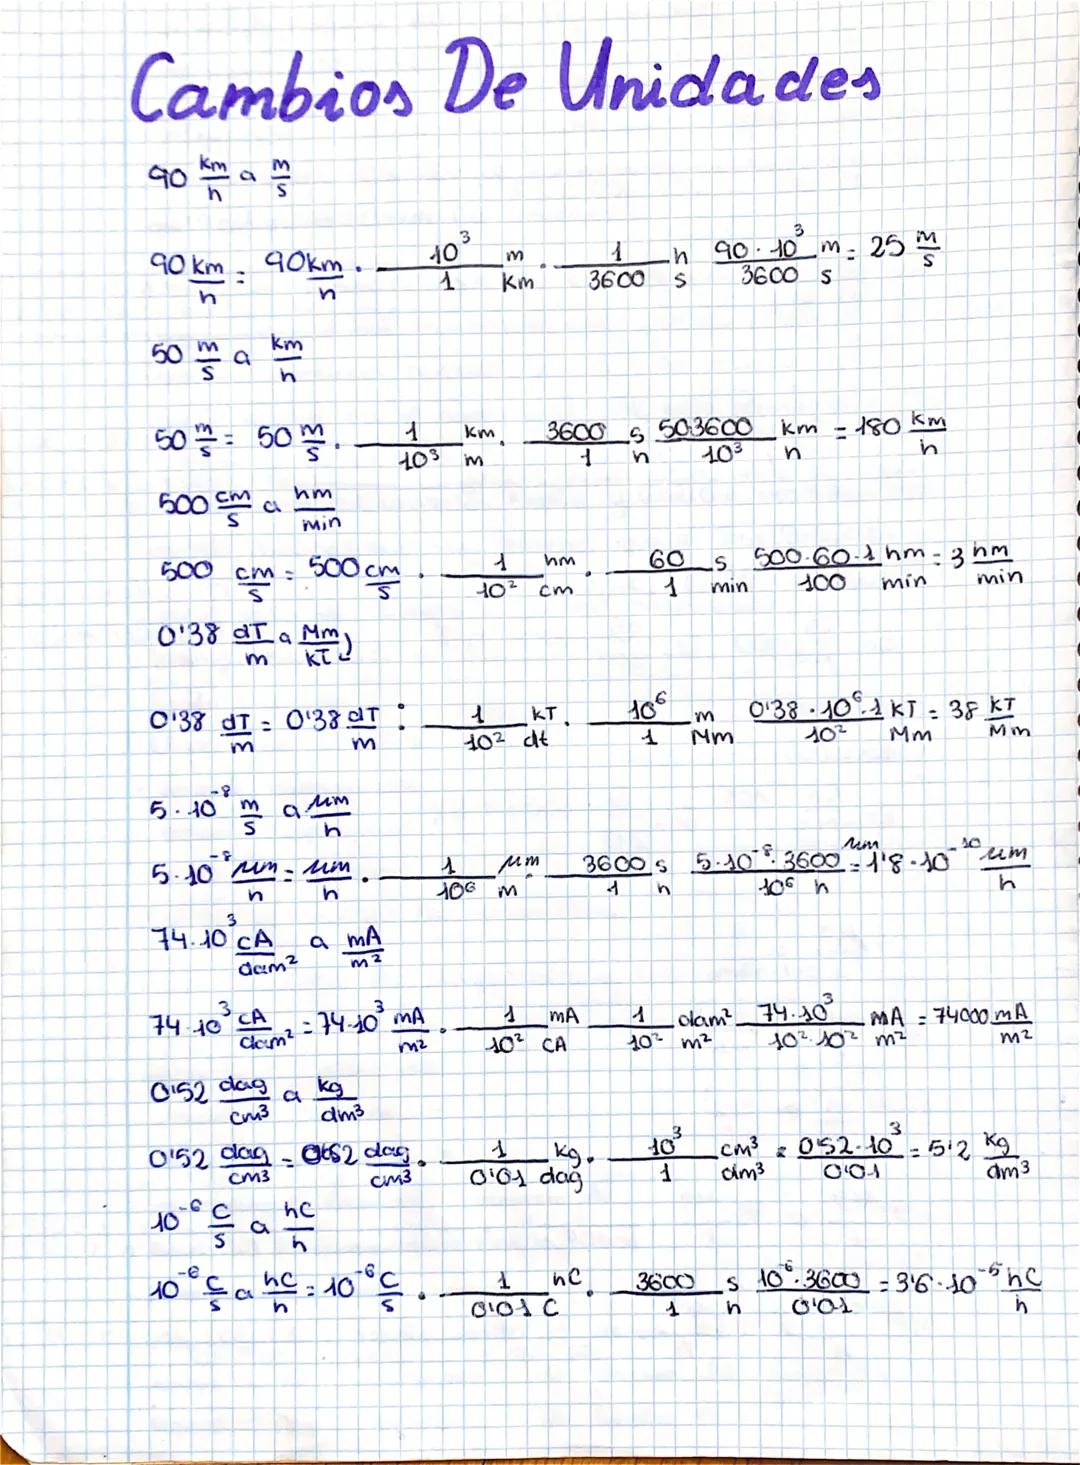 Cambios De Unidades
90 km/h a m/s
90 km/h = 90km/h · 10³/1 m/km · 1/3600 h/s 90·10³/3600 m/s = 25 m/s
50 m/s a km/h
50 m/s = 50 m/s · 1/10³ km/m · 3600/1 s/h 50·3600/10³ km/h = 180 km/h
500 cm/s a hm/min
500 cm/s = 500 cm/s · 1/10² hm/cm · 60/1 s/min 500·60·1/100 hm/min = 3 hm/min
0'38 dT/m a Mm/kT
0'38 dT/m = 0'38 dT/m : 1/10² kT/dt · 10⁶/1 m/Mm 0'38·10⁶·1/10² kT/Mm = 38 kT/Mm
5·10⁻⁸ m/s a µm/h
5·10⁻⁸ µm/h = µm/h · 1/10⁶ µm/m · 3600/1 s/h 5·10⁻⁸·3600/10⁶ µm/h = 1'8·10⁻¹⁰ µm/h
74·10³ cA/dam² a mA/m²
74·10³ cA/dam² = 74·10³ mA/m² · 1/10² mA/CA 1/10² dam²/m² 74·10³/10²·10² mA/m² = 74000 mA/m²
0'52 dag/cm³ a kg/dm³
0'52 dag/cm³ = 0'52 dag/cm³ · 1/0'01 kg/dag · 10³/1 cm³/dm³ = 052·10³/0'01 = 5'2 kg/dm³
10⁻⁶ C/s a hC/h
10⁻⁶ C/s a hC/h = 10⁻⁶ C/s · 1/0'01 hC/C · 3600/1 s/h 10⁻⁶·3600/0'01 = 3'6·10⁻⁵ hC/h